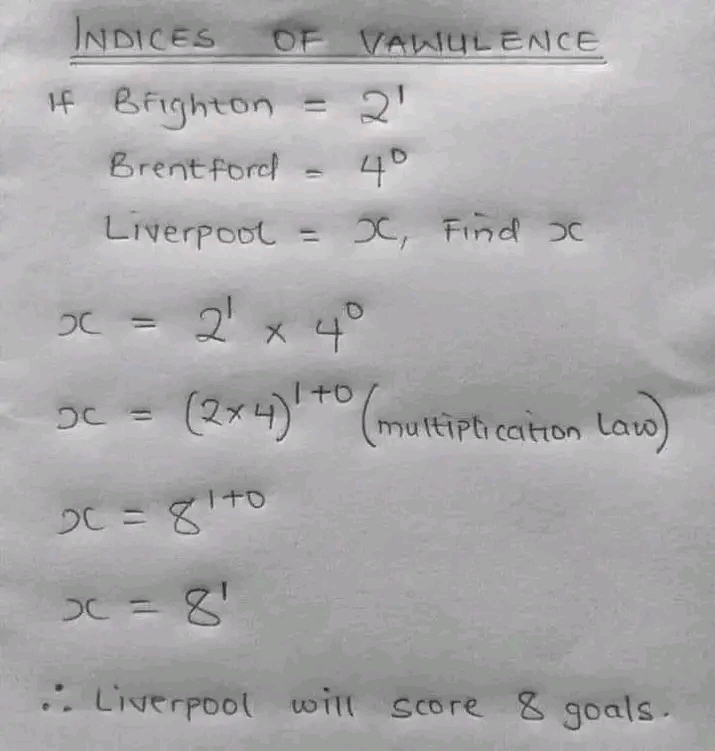 INDICES OF VAWULENCE
If Brighton = 2¹
Brentford = 4⁰
Liverpool = x, Find x
x = 2¹ x 4⁰
x = (2x4)¹⁺⁰ (multiplication Law)
x = 8¹⁺⁰
x = 8¹
∴ Liverpool will score 8 goals.